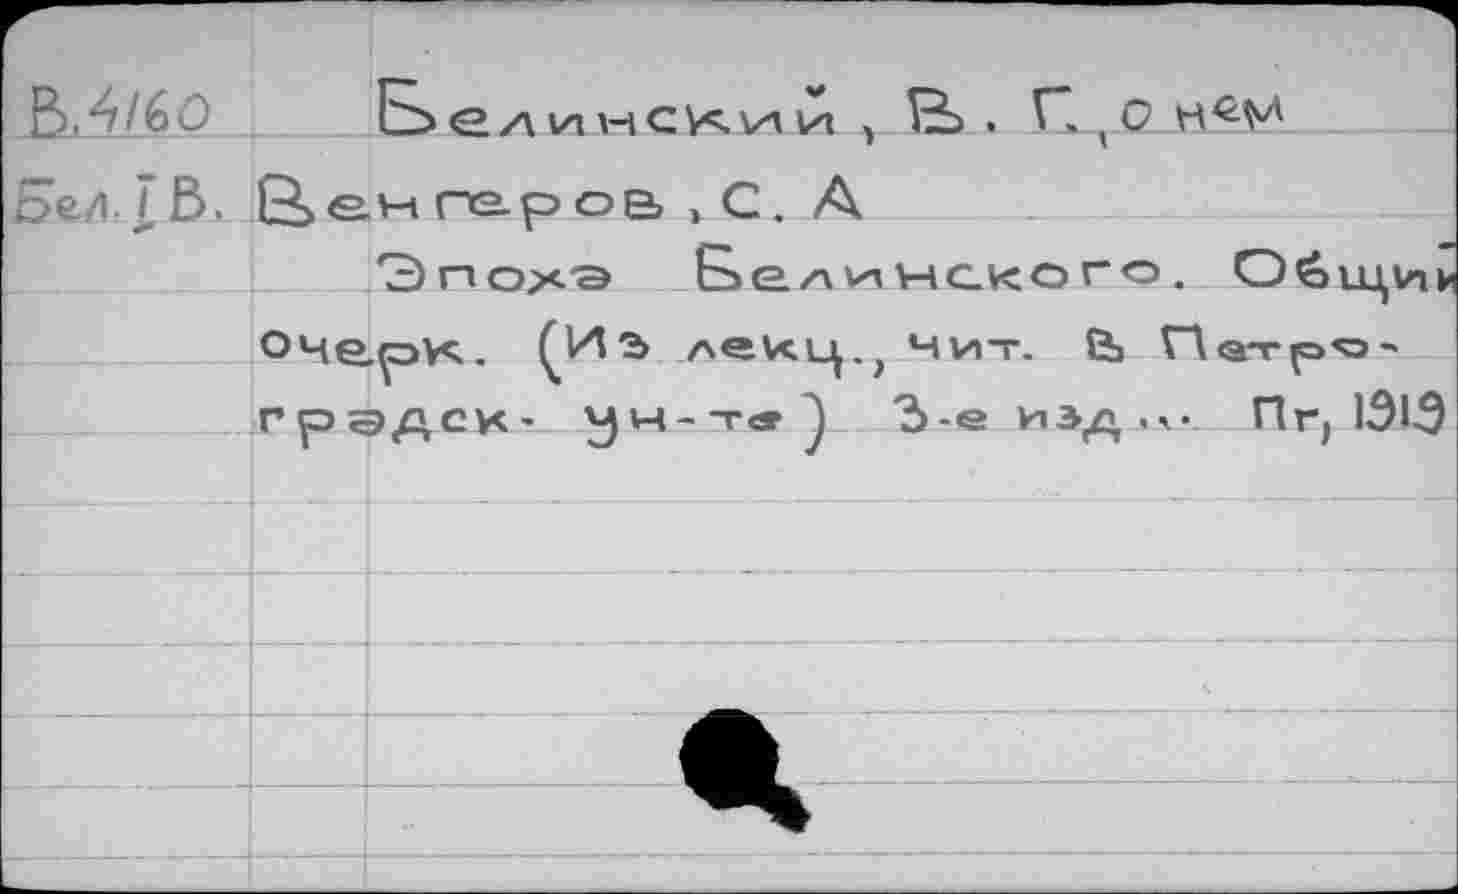 В.4160 Белинский, В. Г., о нем
Бел. I В. Венгеров, С. А
Эпоха Белинского. Общий
очерк. (Из лекц., чит. в Петро-
градск- ун-те) 3-е изд... Пг, 1919